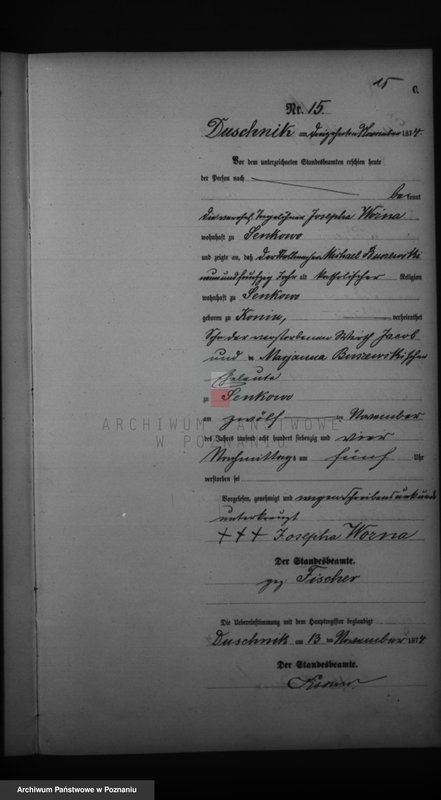 15
C.
Nr. 15.
Duschnik am dreizehnten November 1874.
Vor dem unterzeichneten Standesbeamten erschien heute
der Person nach
bekannt
die Josepha Woina
wohnhaft zu Senkowo
und zeigte an, daß der Michael Buszewski
neunundfünfzig Jahr alt katholischer Religion
wohnhaft zu Senkowo
geboren zu Konin, verheirathet
Sohn der verstorbenen Wirth Jacob
und Marjanna Buszewskischen
Eheleute
zu Senkowo
am zwölf November
des Jahres tausend acht hundert siebenzig und vier
Nachmittags um fünf Uhr
verstorben sei
Vorgelesen, genehmigt und wegen Schreibensunkunde
unterkreuzt
+++ Josepha Worna
Der Standesbeamte.
gez Fischer
Die Uebereinstimmung mit dem Hauptregister beglaubigt
Duschnik am 13 ten November 1874
Der Standesbeamte.
ARCHIWUM PAŃSTWOWE
W POZNANIU
Archiwum Państwowe w Poznaniu